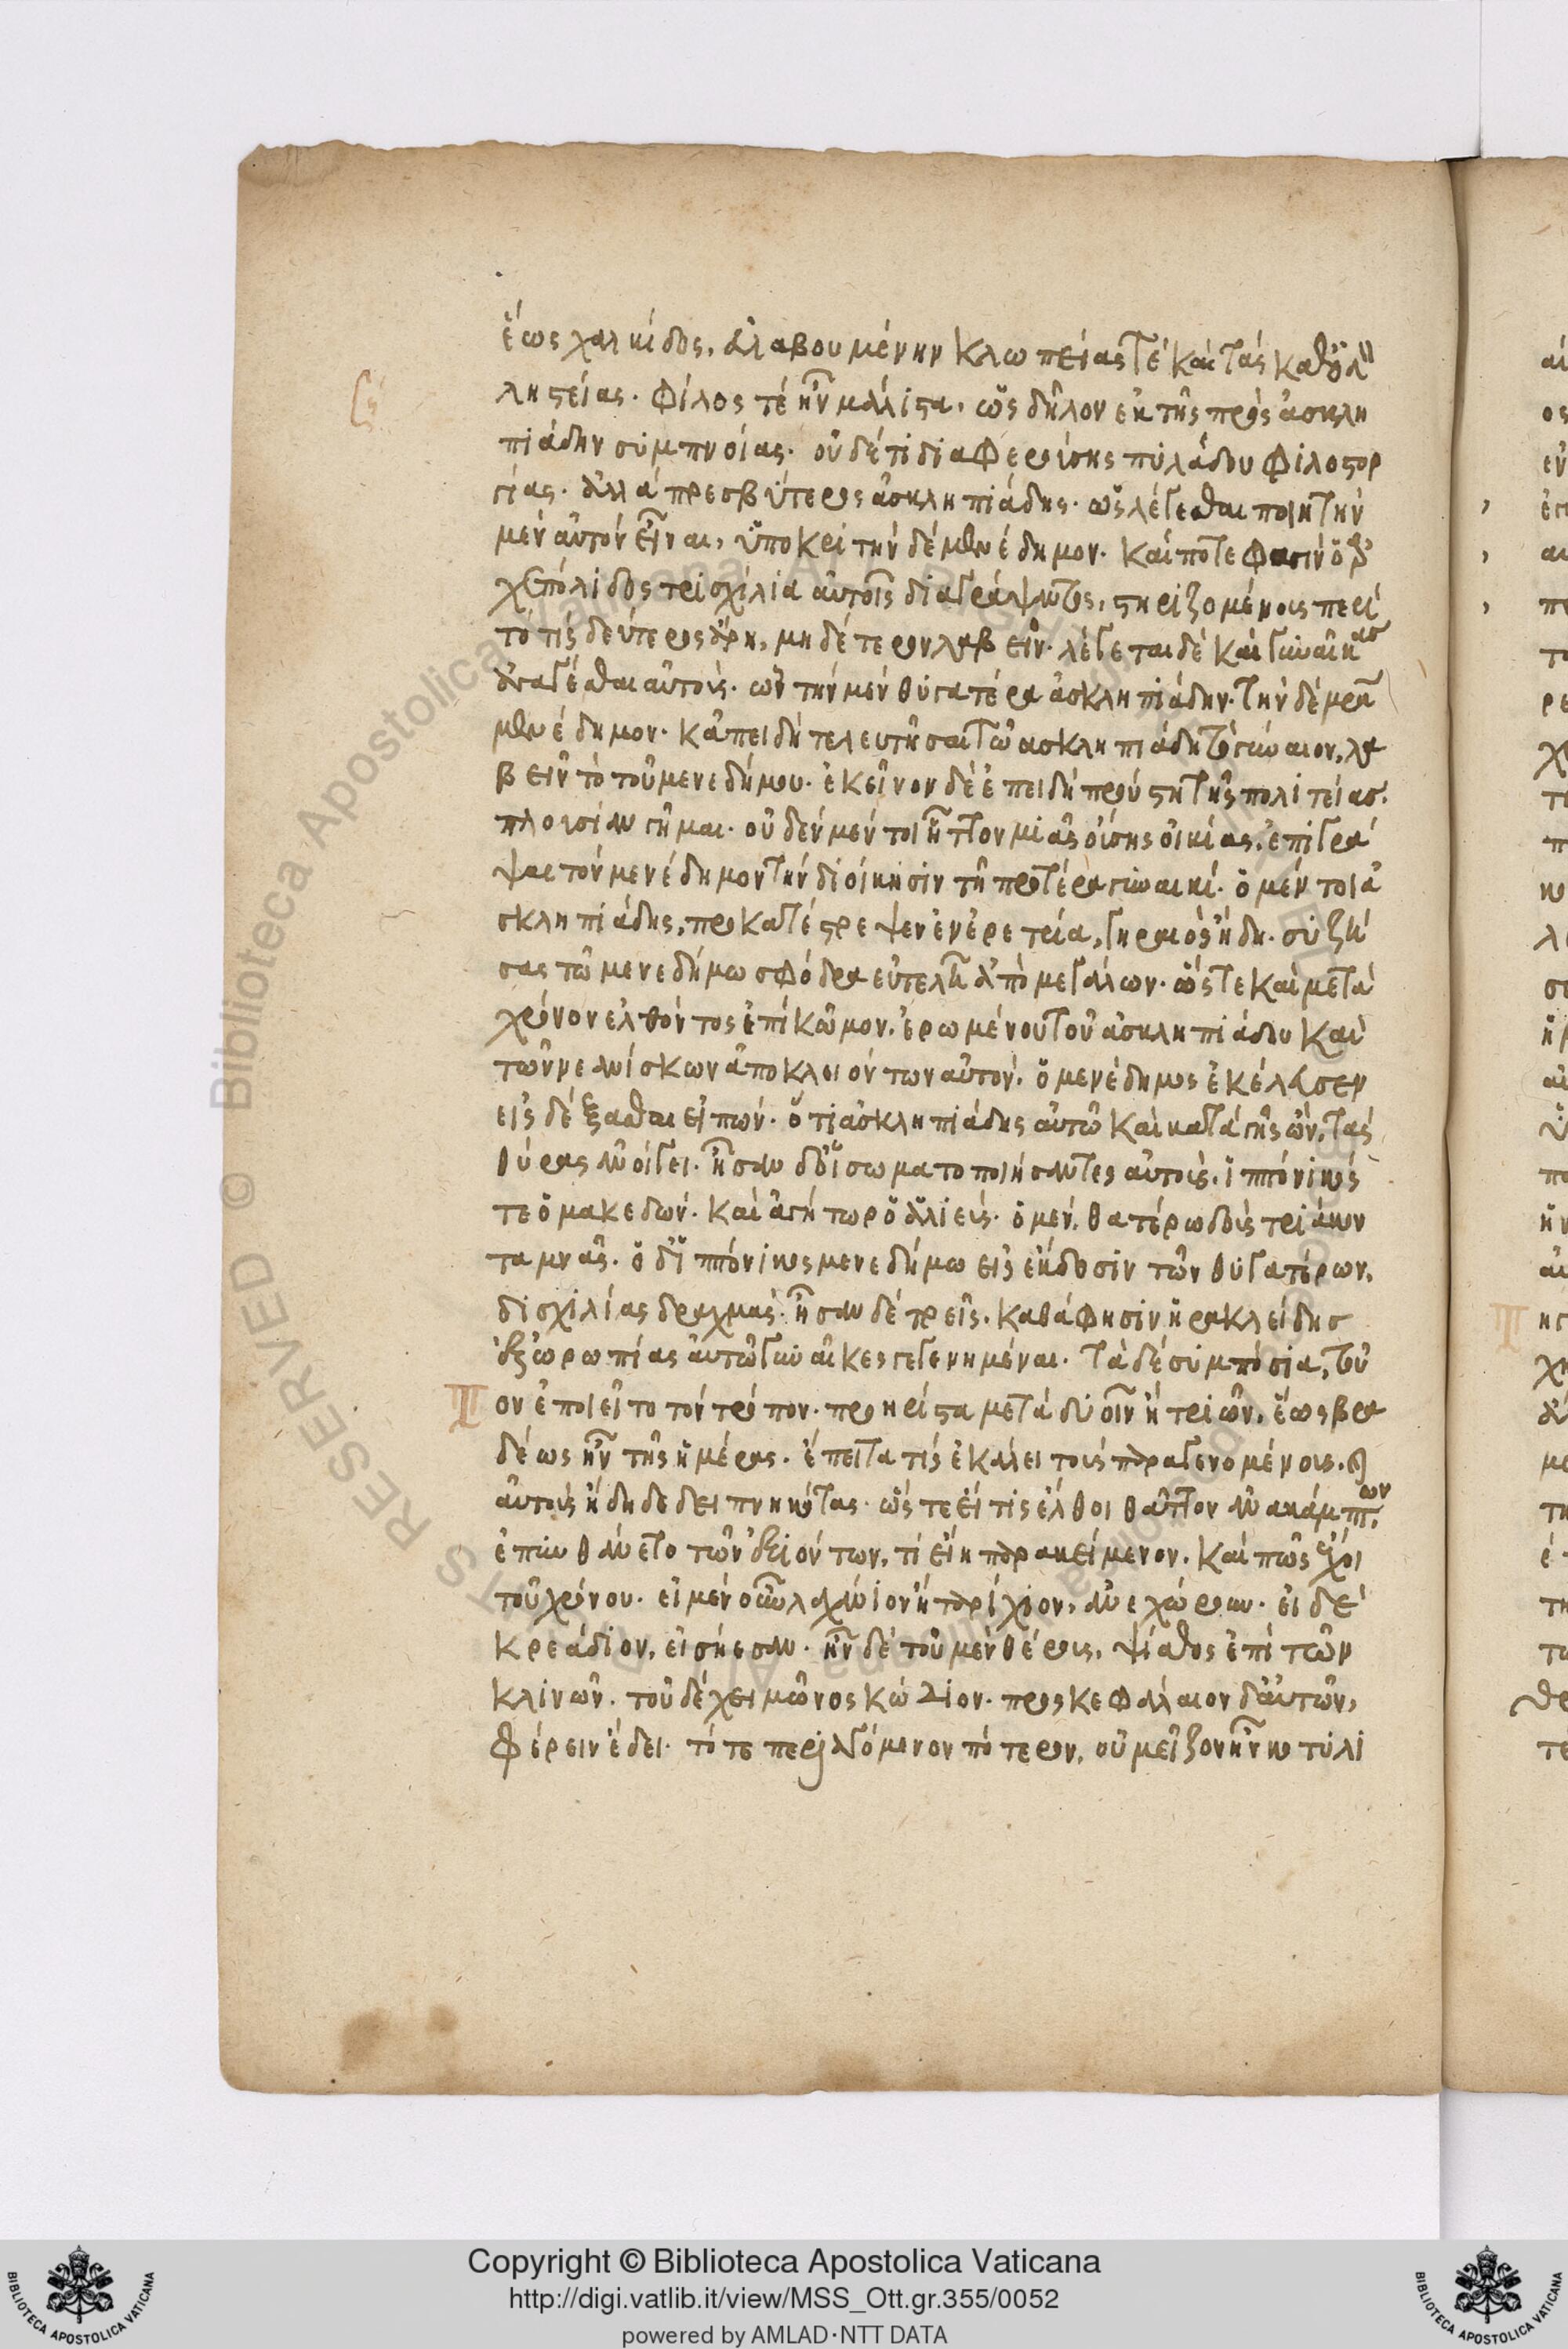 ἕως χαλκίδος, εὐλαβουμένην κλωπείας τὲ καὶ τὰς καθ' ὁδὸν
ληστείας. φίλος τὲ ἦν μάλιστα, ὡς δῆλον ἐκ τῆς πρὸς ἀσκλη
πιάδην συμπνοίας. οὐδέ τι διαφερούσης πυλάδου φιλοστορ
γίας. ἀλλὰ πρεσβύτερος ἀσκληπιάδης. ὡς λέγεσθαι ποιητὴν
μὲν αὐτὸν εἶναι, ὑποκριτὴν δὲ μενέδημον. καί ποτε φασὶν ἀρ
χεπόλιδος τρισχίλια αὐτοῖς διαγράψαντος, στηρίζομένοις περὶ
τὸ τίς δεύτερος ἄρη, μηδέτερον λαβεῖν. λέγεται δὲ καὶ γυναῖκας
ἀγαγέσθαι αὐτούς. ὧν τὴν μὲν θυγατέρα ἀσκληπιάδην. τὴν δὲ μρα
μενέδημον. κἀπειδὴ τελευτῆσαι τῶ ἀσκληπιάδη τὸ γύναιον, λα
βεῖν τὸ τοῦ μενεδήμου. ἐκεῖνον δὲ ἐπειδὴ προύστη τῆς πολιτείας.
πλουσίαν γῆμαι. οὐδὲν μέν τοι ἧττον μιᾶς οὔσης οἰκίας, ἐπιτρέ
ψαι τὸν μενέδημον τὴν διοίκησιν τῆ προτέρα γυναικί. ὁ μέν τοι ἀ
σκληπιάδης, προκατέστρεψεν ἐν ἐρετρία, γηραιὸς ἤδη. συζή
σας τῶ μενεδήμω σφόδρα εὐτελῶς ἀπὸ μεγάλων. ὥς τε καὶ μετὰ
χρόνον ἐλθόντος ἐπὶ κῶμον, ἐρωμένου τοῦ ἀσκληπιάδου καὶ
τῶν νεανίσκων ἀποκλειόντων αὐτὸν, ὁ μενέδημος ἐκέλευσεν
εἰσδέξασθαι εἰπὼν. ὅτι ἀσκληπιάδης αὐτῶ καὶ κατὰ γῆς ὢν, τὰς
θύρας ἀνοίγει. ἦσαν δ' οἱ σωματοποιήσαντες αὐτοὺς, ἱππόνικός
τε ὁ μακεδών. καὶ ἀγήτωρ ὁ λαμιεύς. ὁ μὲν, θατέρω δοὺς τριάκον
τα μνᾶς. ὁ δ' ἱππόνικος μενεδήμω εἰς ἔκδοσιν τῶν θυγατέρων,
δισχιλίας δραχμάς. ἦσαν δὲ τρεῖς. καθάφησιν ἡρακλείδης
ἐξ ὠρωπίας αὐτῶ γυναῖκες γεγενημέναι. τὰ δὲ συμπόσια, τοῦ
ον ἐποιεῖτο τὸν τρόπον. προηρίστα μετὰ δυοῖν ἢ τριῶν, ἕως βρα
δέως ἦν τῆς ἡμέρας. ἔπειτα τίς ἐκάλει τοὺς παραγενομένους. καὶ
αὐτοὺς ἤδη δεδειπνηκότας. ὥς τε εἴ τις ἔλθοι θᾶττον ἀνακάμπτων,
ἐπυνθάνετο τῶν ἐξιόντων, τί εἴη παρακείμενον. καὶ πῶς ἔχοι
τοῦ χρόνου. εἰ μὲν οὖν λαχάνιον ἢ ταρίχιον, ἀνεχώρουν. εἰ δὲ
κρεάδιον, εἰσήεσαν. ἦν δὲ τοῦ μὲν θέρους, ψίαθος ἐπὶ τῶν
κλινῶν. τοῦ δὲ χειμῶνος κώδιον. προσκεφάλαιον δ' αὐτῶν,
φέρειν ἔδει. τό τε περιαγόμενον πότερον, οὐ μεῖζον ἦν κοτυλι